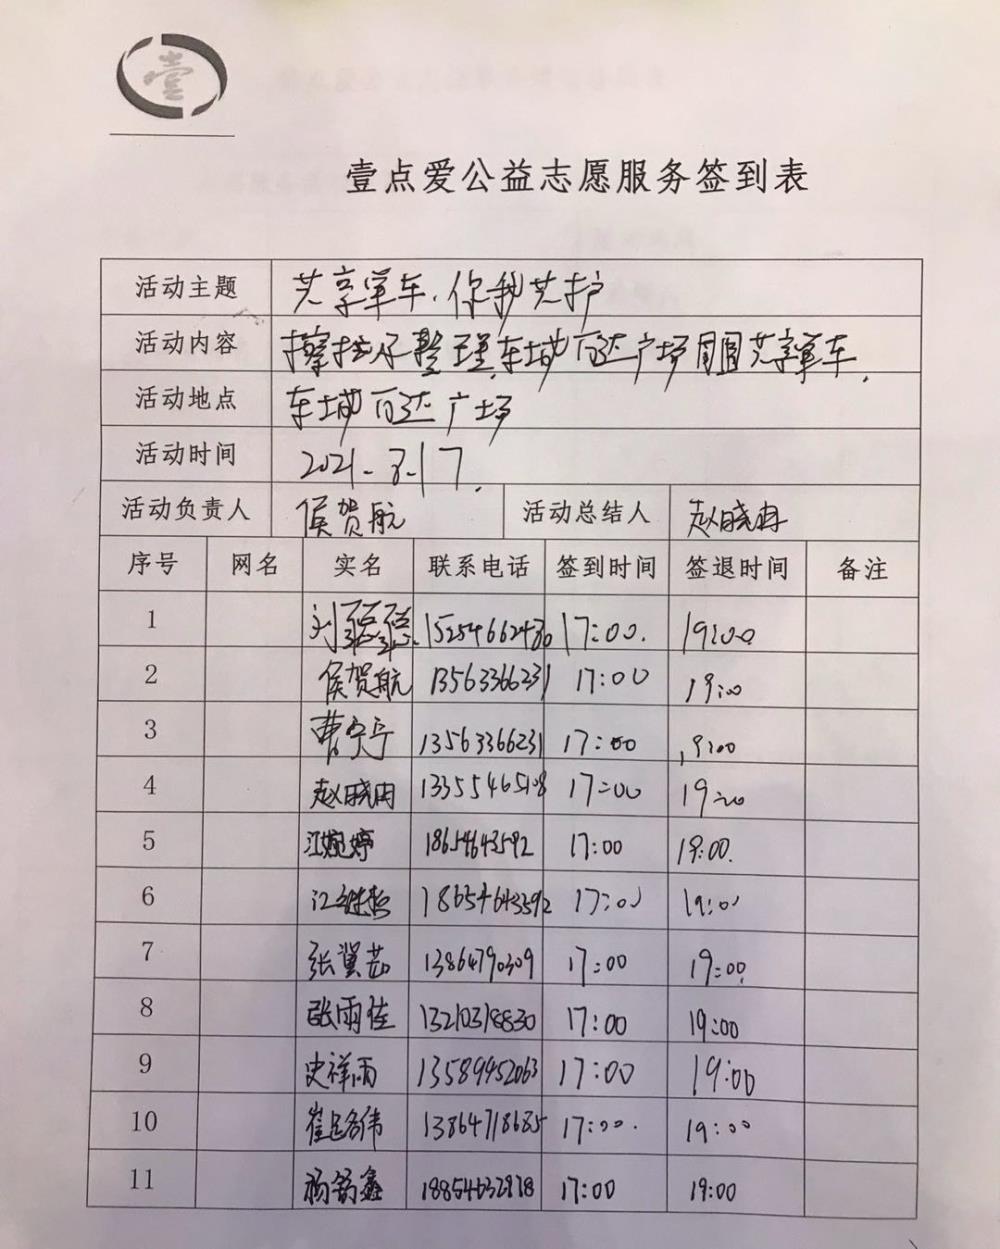 壹
壹点爱公益志愿服务签到表
活动主题 共享单车.你我共护
活动内容 擦拉及整理,东城万达广场周围共享单车.
活动地点 东城万达广场
活动时间 2021-3-17.
活动负责人 侯贺航 活动总结人 赵晓冉
序号 网名 实名 联系电话 签到时间 签退时间 备注
1 刘聪聪 15254662430 17:00. 19:00
2 侯贺航 13563366231 17:00 19:00
3 曹安宁 13563366231 17:00 19:00
4 赵晓冉 13355465108 17:00 19:00
5 江婉婷 18654643592 17:00 19:00.
6 18654643592 17:00 19:00
7 张冀茹 13864790309 17:00 19:00.
8 张雨佳 13210318830 17:00 19:00
9 史祥雨 13589952063 17:00 19:00
10 13864718685 17:00. 19:00
11 杨舒鑫 18854632878 17:00 19:00